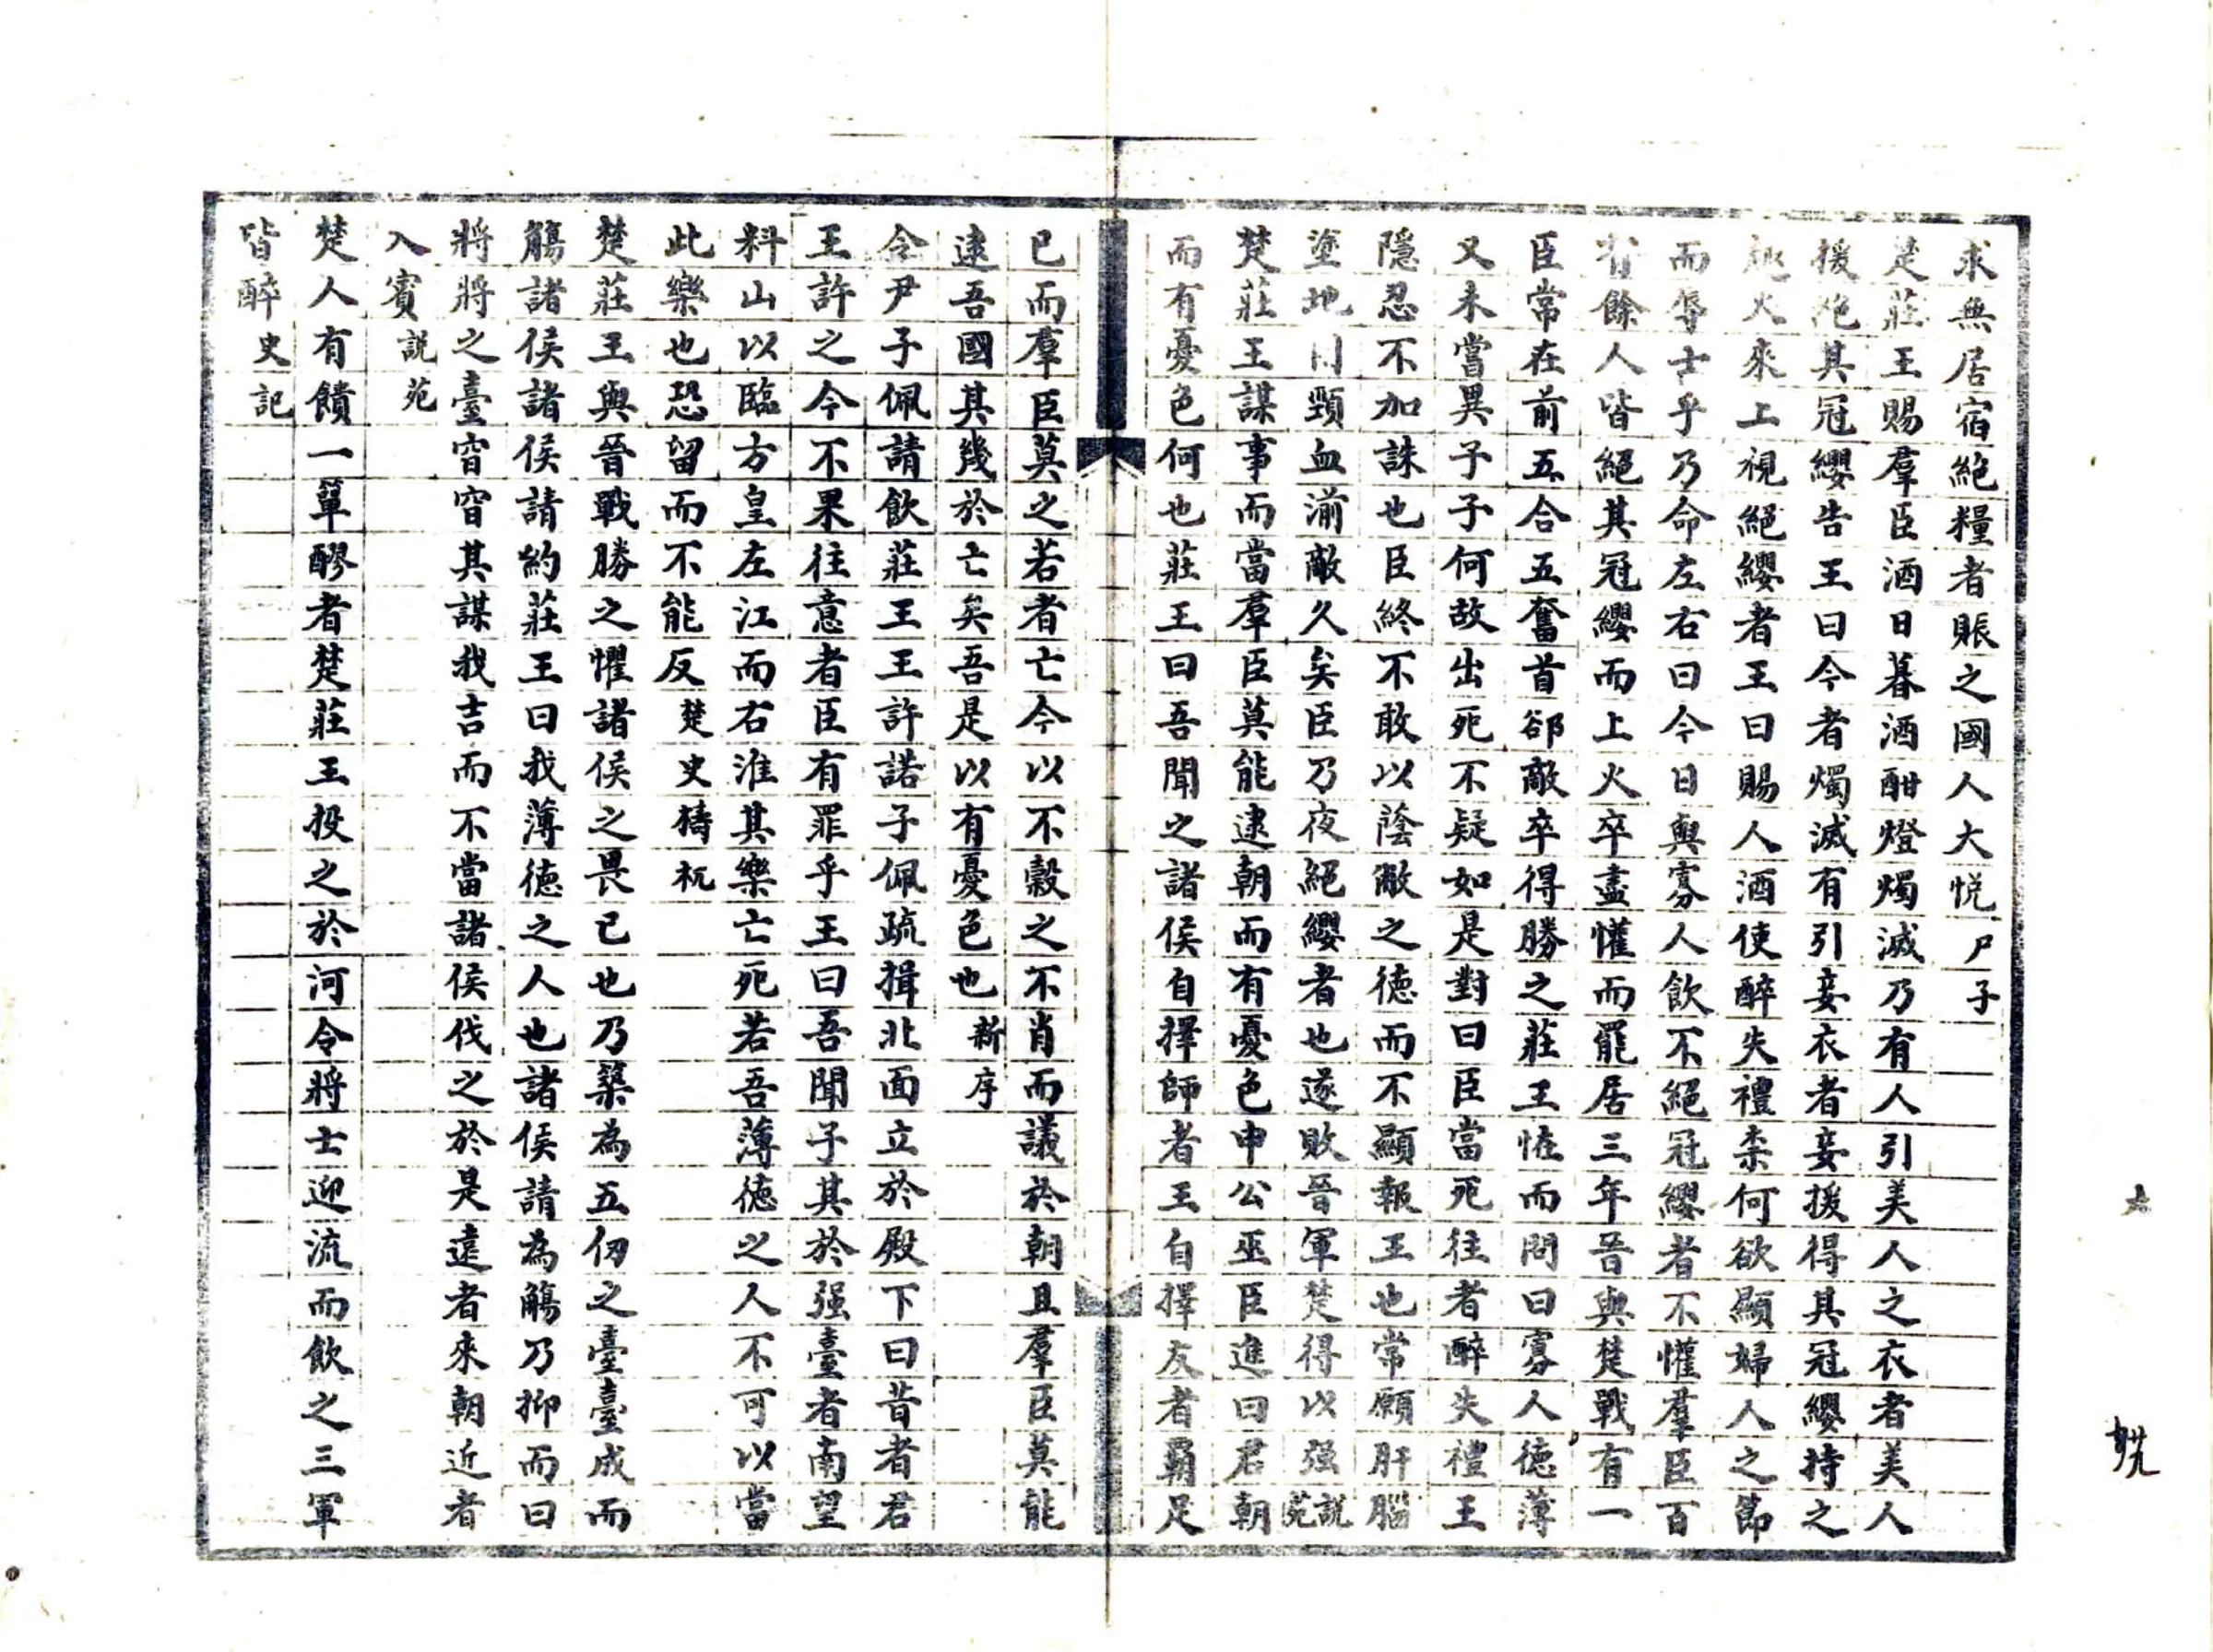 求無居宿絶糧者賑之國人大悅尸子
楚莊王賜羣臣酒日暮酒酣燈燭滅乃有人引美人之衣者美人
援絶其冠纓告王曰今者燭滅有引妾衣者妾援得其冠纓持之
趣火來上視絕纓者王曰賜人酒使醉失禮柰何欲顯婦人之節
而辱士乎乃命左右曰今日與寡人飲不絕冠纓者不懽羣臣百
有餘人皆絕其冠纓而上火卒盡懽而罷居三年晉與楚戰有一
臣常在前五合五奮首郤敵卒得勝之莊王恠而問曰寡人德薄
又未嘗異子子何故出死不疑如是對曰臣當死往者醉失禮王
隱忍不加誅也臣終不敢以蔭蔽之德而不顯報王也常願肝腦
塗地用頸血湔敵久矣臣乃夜絕纓者也遂敗晉軍楚得以强說苑
楚莊王謀事而當羣臣莫能逮朝而有憂色申公巫臣進曰君朝
而有憂色何也莊王曰吾聞之諸侯自擇師者王自擇友者霸足
已而羣臣莫之若者亡今以不穀之不肖而議於朝且羣臣莫能
逮吾國其幾於亡矣吾是以有憂色也新序
令尹子佩請飲莊王王許諾子佩疏揖北面立於殿下曰昔者君
王許之今不果往意者臣有罪乎王曰吾聞子其於强臺者南望
料山以臨方皇左江而右淮其樂亡死若吾薄德之人不可以當
此樂也恐留而不能反楚史檮杌
楚莊王與晉戰勝之懼諸侯之畏已也乃築為五仞之臺臺成而
觴諸侯諸侯請約莊王曰我薄德之人也諸侯請為觴乃抑而曰
將將之臺窅窅其謀我言而不當諸侯伐之於是遠者來朝近者
入賓說苑
楚人有饋一簞醪者楚莊王投之於河令將士迎流而飲之三軍
皆醉史記